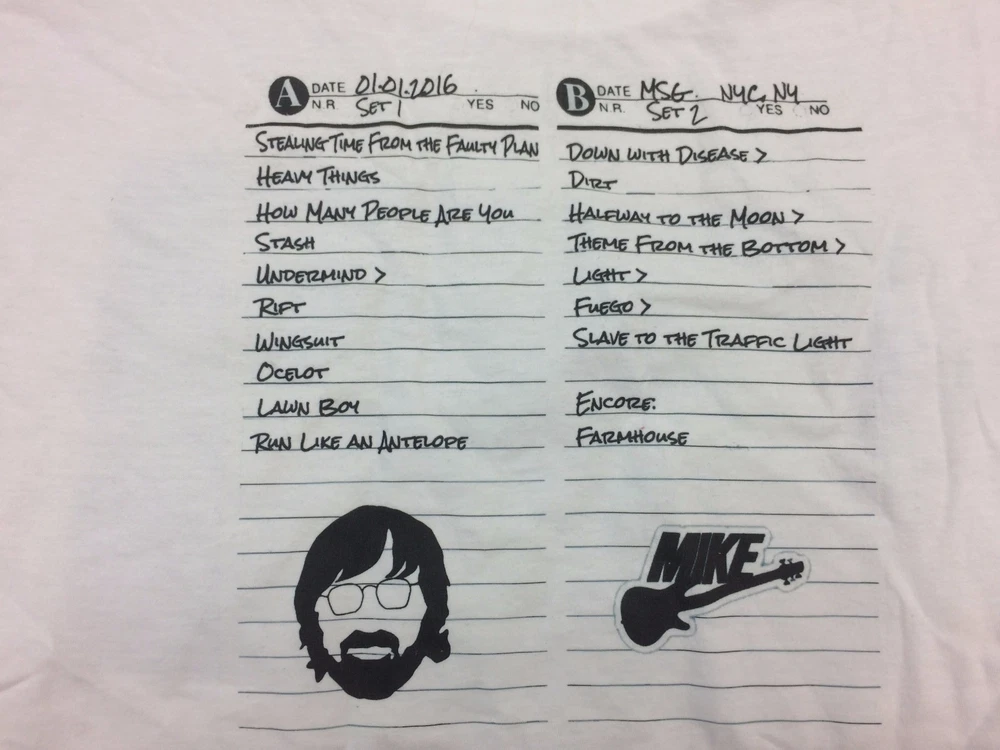 A DATE 01.01.2016
N.R. SET 1 YES NO
STEALING TIME FROM THE FAULTY PLAN
HEAVY THINGS
HOW MANY PEOPLE ARE YOU
STASH
UNDERMIND >
RIFT
WINGSUIT
OCELOT
LAWN BOY
RUN LIKE AN ANTELOPE
B DATE MSG. NYC, NY
N.R. SET 2 YES NO
DOWN WITH DISEASE >
DIRT
HALFWAY TO THE MOON >
THEME FROM THE BOTTOM >
LIGHT >
FUEGO >
SLAVE TO THE TRAFFIC LIGHT
ENCORE:
FARMHOUSE
MIKE